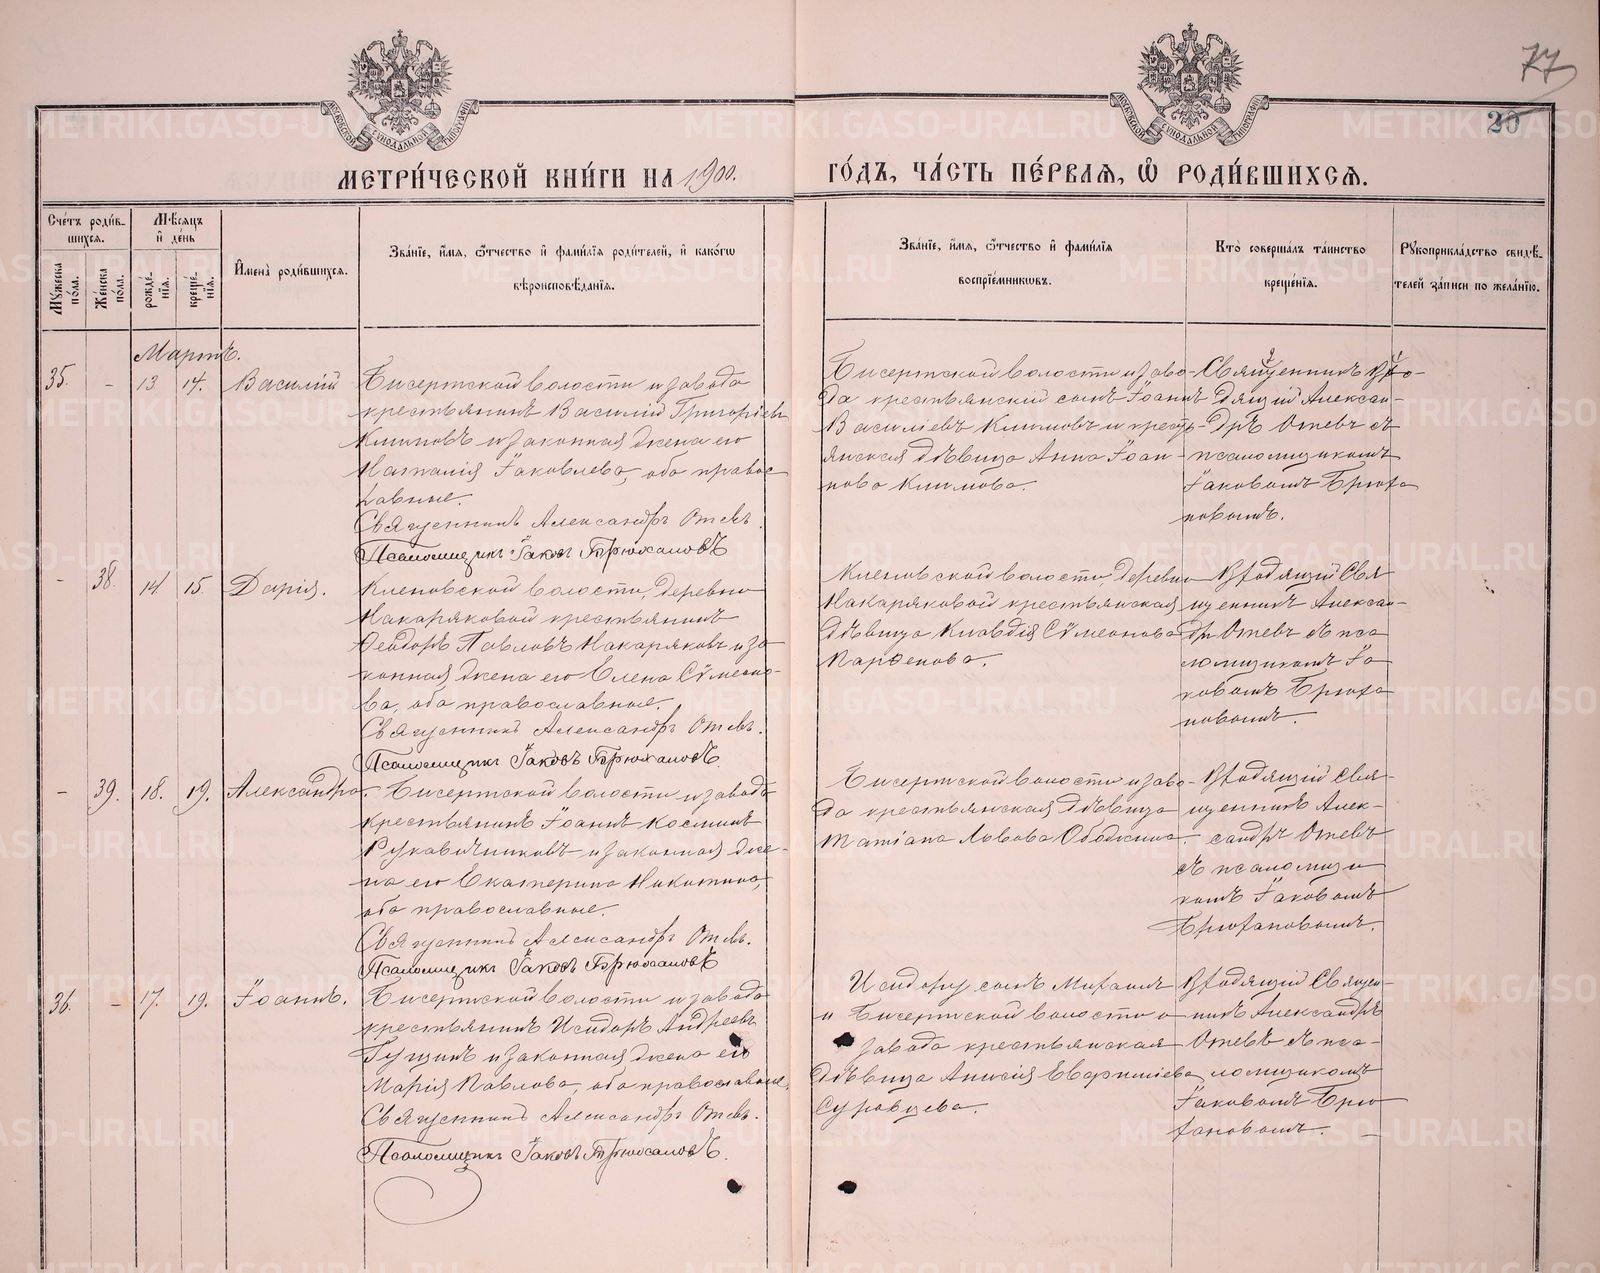 77
20
МЕТРИ́ЧЕСКОЙ КНИ́ГИ НА 1900.
ГО́ДЪ, ЧА́СТЬ ПЕ́РВАѦ, Ѡ РОДИ́ВШИХСѦ.
Сче́тъ роди́в-
шихсѧ.
Мѣ́сяцъ
и де́нь
Мужеска по́ла.
Же́нска по́ла.
рожде́-
нїѧ.
креще́-
нїѧ.
Имена̀ роди́вшихсѧ.
Зва́нїе, и́мѧ, ѻ́тчество и фами́лїѧ роди́телей, и како́гѡ
вѣроисповѣ́данїѧ.
Зва́нїе, и́мѧ, ѻ́тчество и фами́лїѧ
воспрїе́мникѡвъ.
Кто̀ соверша́лъ та́инство
креще́нїѧ.
Рукоприкла́дство свидѣ́-
телей за́писи по жела́нїю.
Мартъ.
35. - 13 14. Василій
Бисертской волости и завода
крестьянинъ Василій Григорьевъ
Климовъ и законная жена его
Наталія Іаковлева, оба правос
лавные.
Священникъ Александръ Отевъ.
Псаломщикъ Іаковъ Брюхановъ
Бисертской волости и заво-
да крестьянскій сынъ Іоаннъ
Василіевъ Климовъ и кресть-
янская дѣвица Анна Іоан-
нова Климова.
Священникъ Вхо-
дящій Алексан-
дръ Отевъ съ
псаломщикомъ
Іаковомъ Брюха
новымъ.
- 38. 14 15. Дарія.
Кленовской волости, деревни
Накаряковой крестьянинъ
Ѳеодоръ Павловъ Накаряковъ и за
конная жена его Елена Сѵмеоно-
ва, оба православные.
Священникъ Александръ Отевъ.
Псаломщикъ Іаковъ Брюхановъ.
Кленовской волости, деревни
Накаряковой крестьянская
дѣвица Клавдія Сѵмеонова
Парѳенова.
Входящій Свя
щенникъ Алексан-
дръ Отевъ съ пса
ломщикомъ Іа
ковомъ Брюха
новымъ.
- 39. 18. 19. Александра.
Бисертской волости и завода
крестьянинъ Іоаннъ Косминъ
Рукавичниковъ и законная же-
на его Екатерина Никитина,
оба православные.
Священникъ Александръ Отевъ.
Псаломщикъ Іаковъ Брюхановъ
Бисертской волости и заво-
да крестьянская дѣвица
Татіана Львова Ободкина.
Входящій Свя-
щенникъ Алек-
сандръ Отевъ
съ псаломщи
комъ Іаковомъ
Брюхановымъ.
36. - 17. 19. Іоаннъ.
Бисертской волости и завода
крестьянинъ Исидоръ Андреевъ
Гущинъ и законная жена его
Марія Павлова, оба православные.
Священникъ Александръ Отевъ.
Псаломщикъ Іаковъ Брюхановъ.
Исидору сынъ Михаилъ
и Бисертской волости и
завода крестьянская
дѣвица Анисія
Суровцева.
Входящій Священ-
никъ Александръ
Отевъ съ пса-
ломщикомъ
Іаковомъ Брю
хановымъ.
METRIKI.GASO-URAL.RU